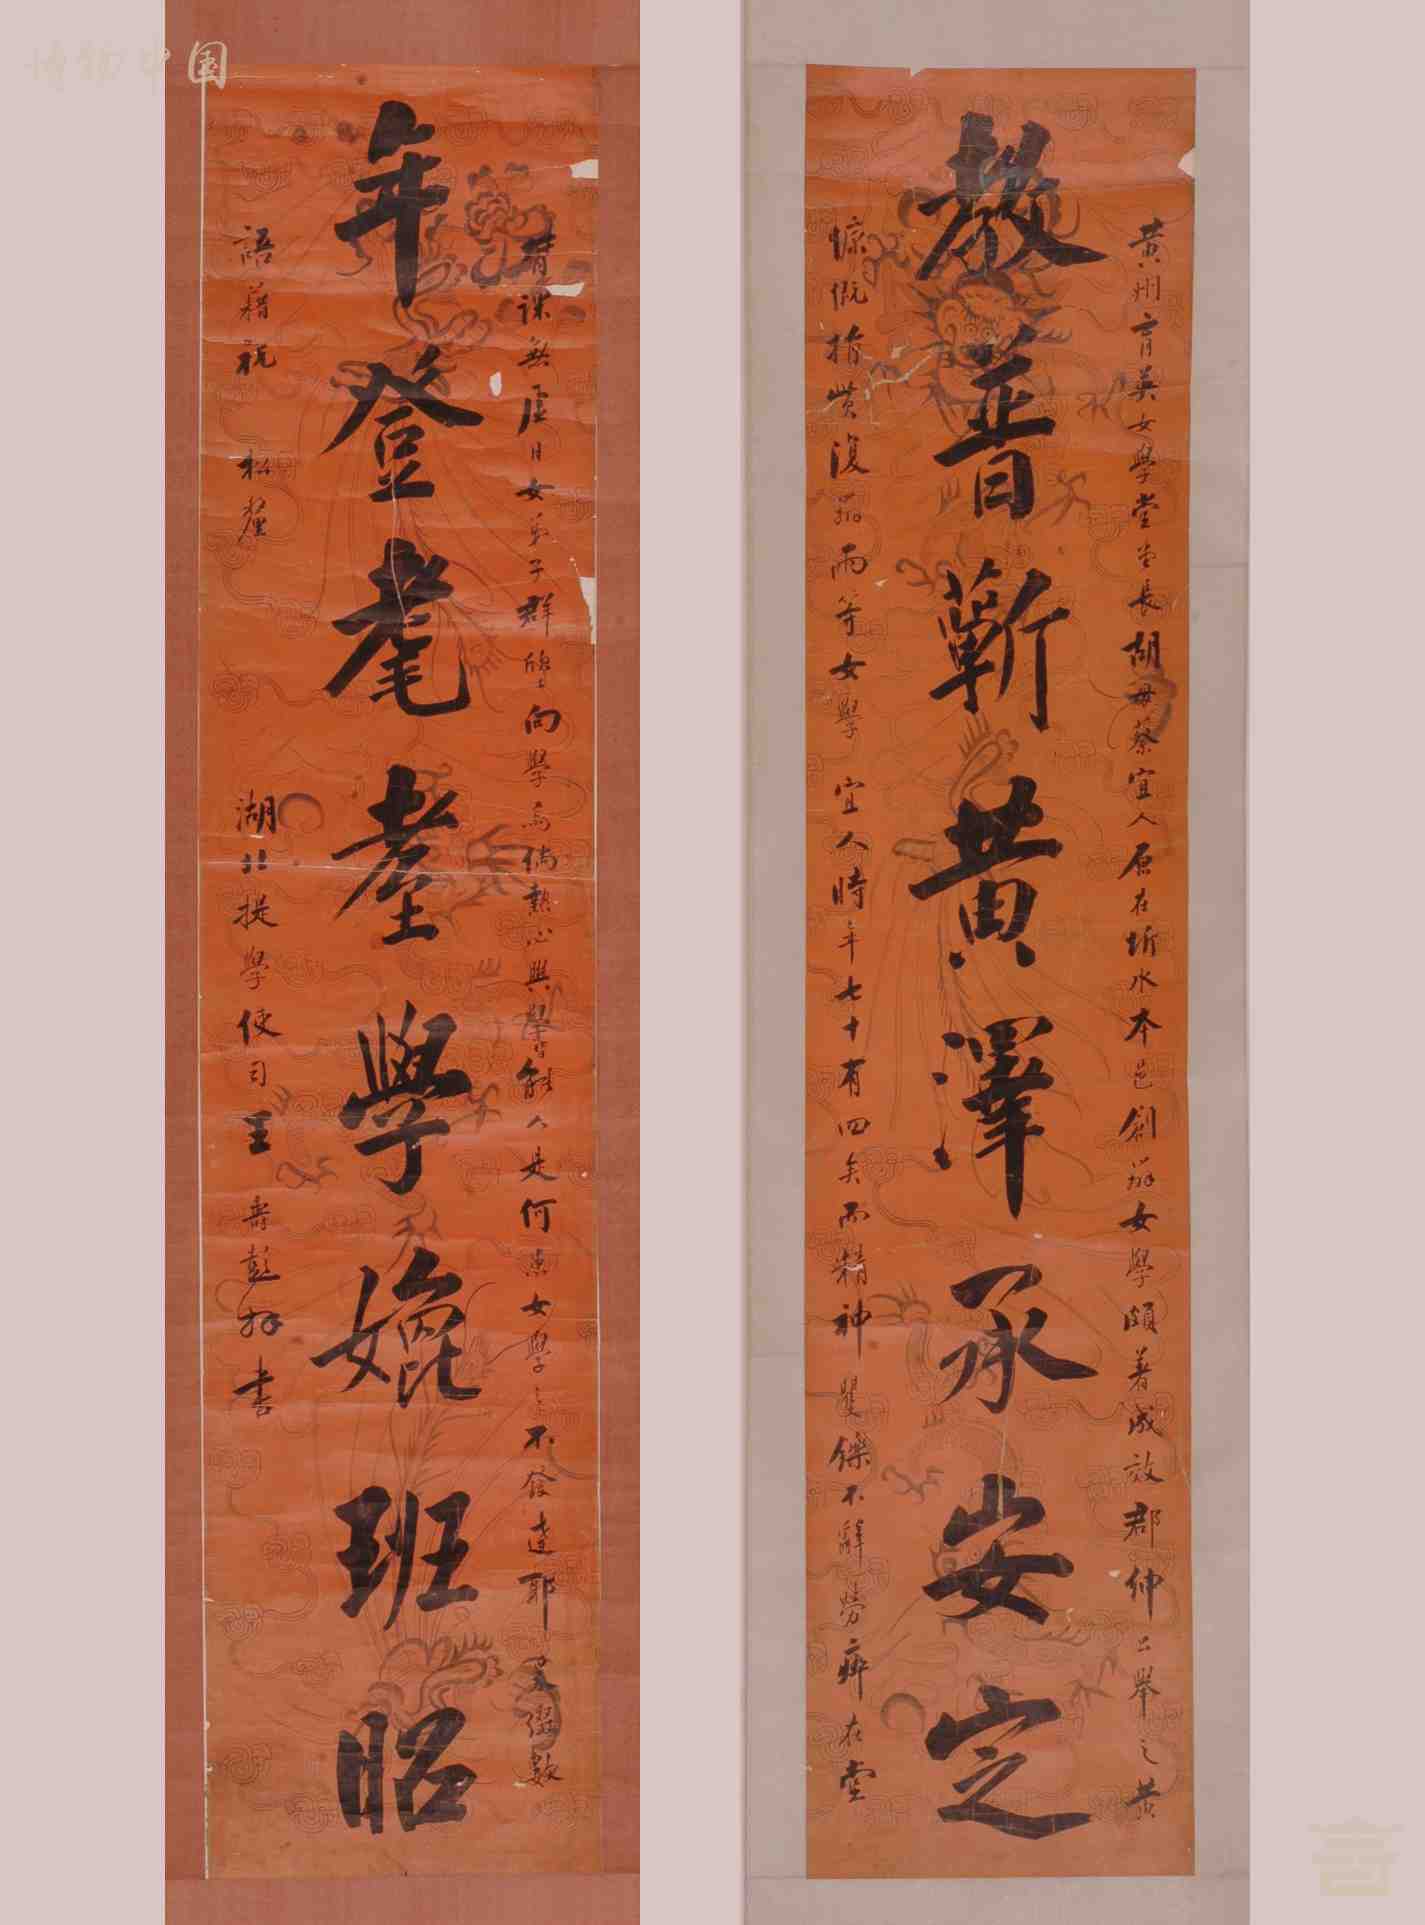 博物中国
黄州育英女學堂堂長胡母蔡宜人原在蘄水本邑創辦女學頗著成效郡紳公舉之黄
教普蘄黄澤承安定
慷慨捐貲復辦兩等女學 宜人時年七十有四矣而精神矍鑠不辭勞瘁在堂
督課無虛日女弟子群堅向學焉倘熱心興學皆能人是何患女學之不發達耶爰綴數
年登耄耋學媲班昭
語藉祝 松釐 湖北提學使司王壽彭拜書